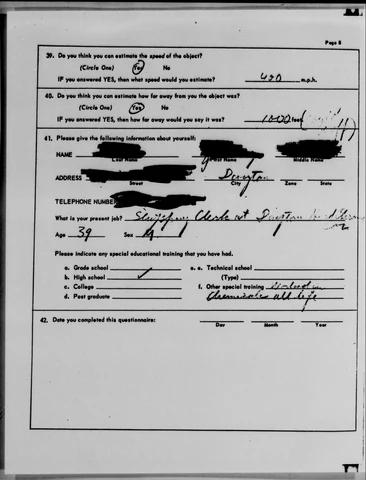 Page 8
39. Do you think you can estimate the speed of the object?
(Circle One) Yes No
IF you answered YES, then what speed would you estimate? 400 m.p.h.
40. Do you think you can estimate how far away from you the object was?
(Circle One) Yes No
IF you answered YES, then how far away would you say it was? 1000 feet
41. Please give the following information about yourself:
NAME
Last Name First Name Middle Name
ADDRESS Dayton
Street City Zone State
TELEPHONE NUMBER
What is your present job? Shipping Clerk at Dayton
Age 39 Sex M
Please indicate any special educational training that you have had.
a. Grade school e. Technical school
b. High school ✓ (Type)
c. College f. Other special training
d. Post graduate Chemicals all life
42. Date you completed this questionnaire:
Day Month Year